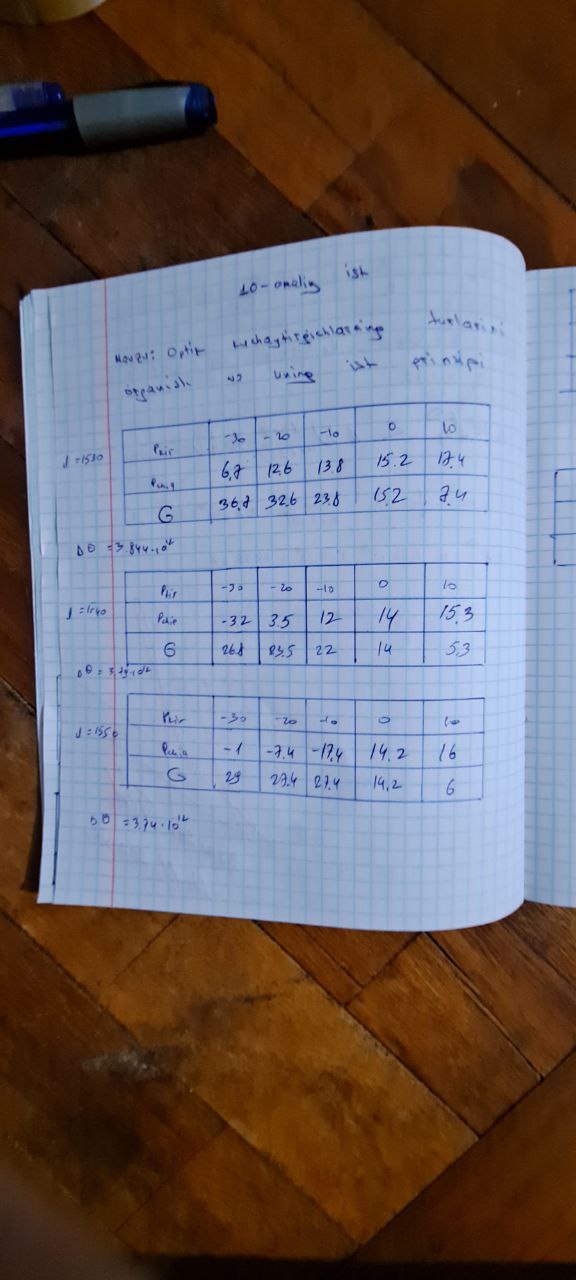 10-amaliy ish
Mavzu: Optik kuchaytirgichlarning turlarini
organish va uning ish prinsipi
λ=1530
Pkir -30 -20 -10 0 10
Pchiq 6,7 12,6 13.8 15.2 17.4
G 36,7 32,6 23.8 15,2 7.4
Δθ = 3.844·10¹²
λ=1540
Pkir -30 -20 -10 0 10
Pchiq -32 3.5 12 14 15.3
G 26.8 23,5 22 14 5.3
Δθ = 3.79·10¹²
λ=1550
Pkir -30 -20 -10 0 10
Pchiq -1 -7.4 -17.4 14.2 16
G 29 27.4 27.4 14.2 6
Δθ = 3.74·10¹²